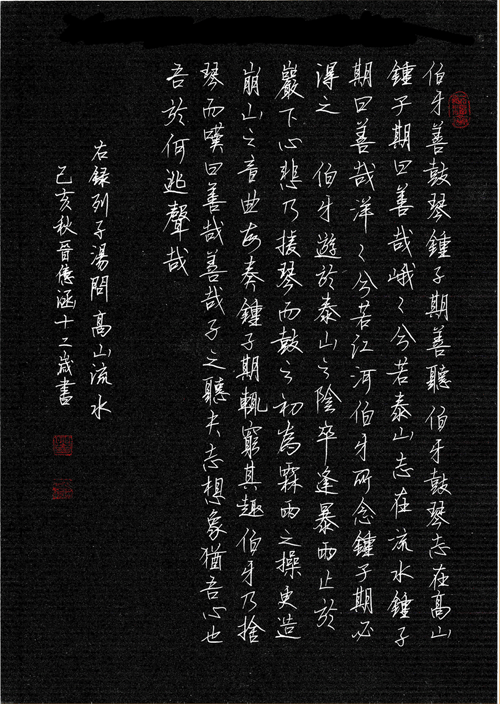 伯牙善鼓琴鍾子期善聽伯牙鼓琴志在高山
鍾子期曰善哉峨〻兮若泰山志在流水鍾子
期曰善哉洋〻兮若江河伯牙所念鍾子期必
得之 伯牙遊於泰山之陰卒逢暴雨止於
巖下心悲乃援琴而鼓之初為霖雨之操更造
崩山之音曲每奏鍾子期輒窮其趣伯牙乃捨
琴而嘆曰善哉善哉子之聽夫志想象猶吾心也
吾於何逃聲哉
右錄列子湯問高山流水
己亥秋晉億涵十二歲書